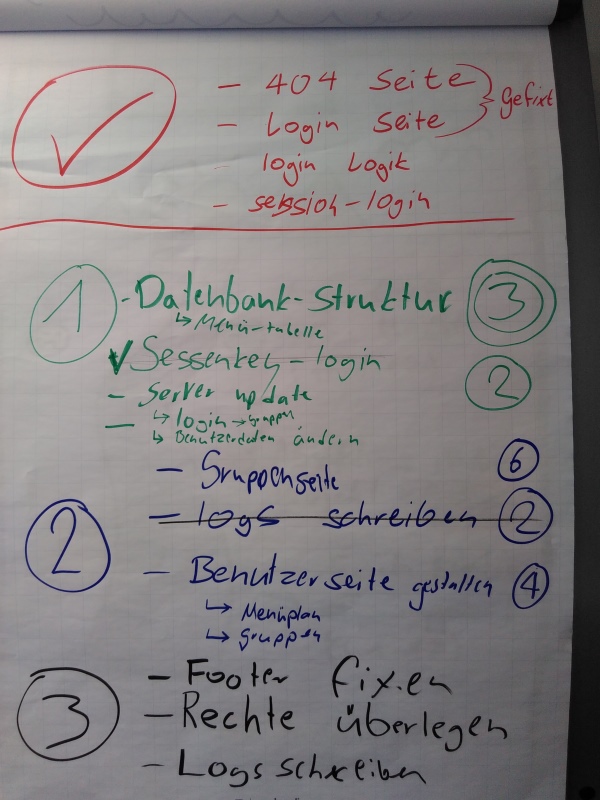 - 404 Seite
- Login Seite } gefixt
- login Logik
- session-login
1 - Datenbank-Struktur 3
↳ Menü-tabelle
✓ Sessenkey-login 2
- Server update
- ↳ login → gruppen
↳ Benutzerdaten ändern
- Gruppenseite 6
2 - logs schreiben 2
- Benutzerseite gestalten 4
↳ Menüplan
↳ gruppen
3 - Footer fixen
- Rechte überlegen
- Logs schreiben